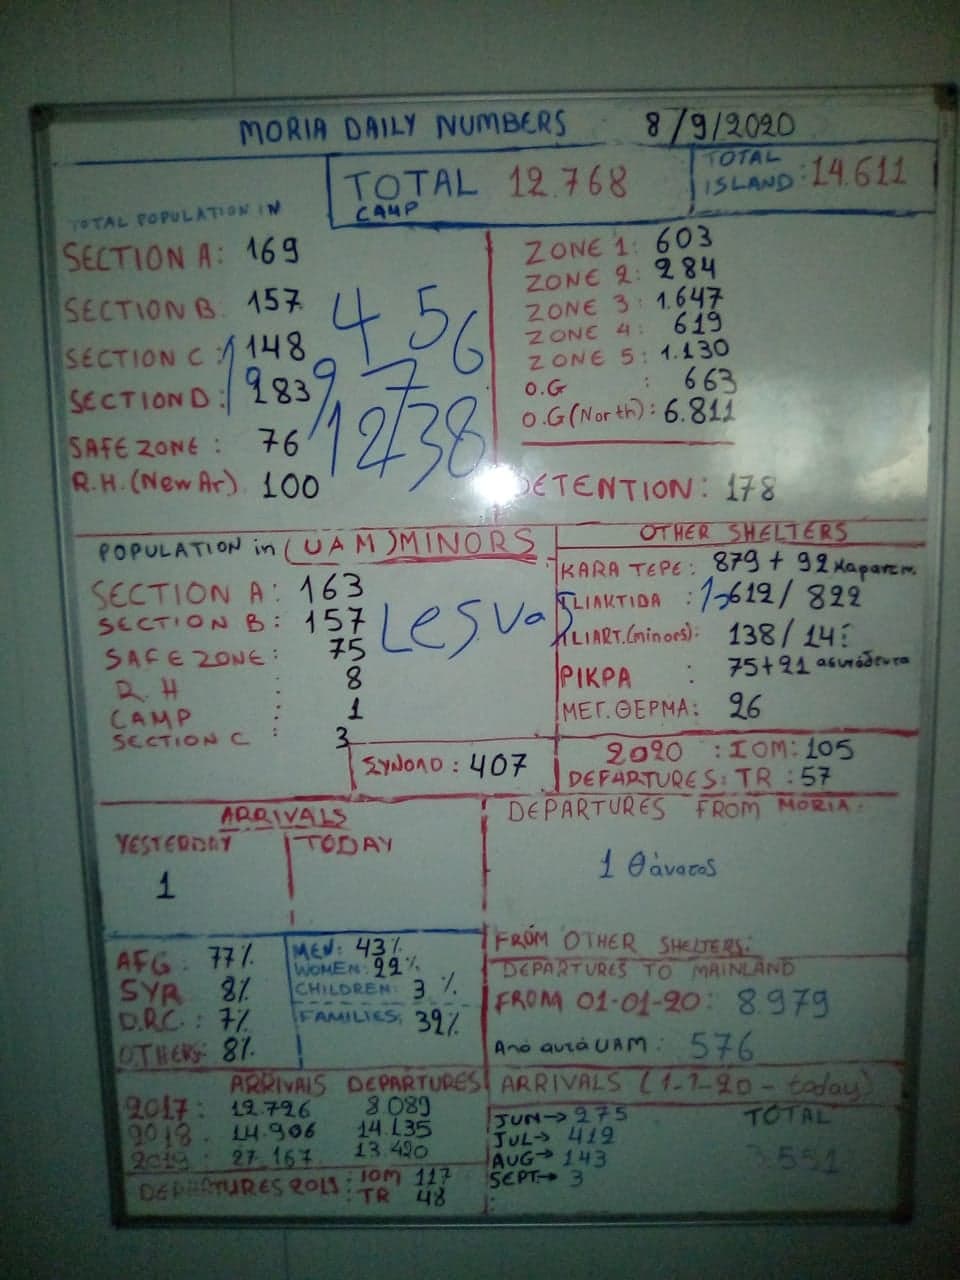 MORIA DAILY NUMBERS 8/9/2020
TOTAL CAMP 12.768
TOTAL ISLAND: 14.611
TOTAL POPULATION IN
SECTION A: 169
SECTION B: 157
SECTION C: 148
SECTION D: 283
SAFE ZONE: 76
R.H.(New Ar). 100
4 5 6
1997
1238
ZONE 1: 603
ZONE 2: 284
ZONE 3: 1.647
ZONE 4: 619
ZONE 5: 1.130
O.G : 663
O.G(North): 6.811
DETENTION: 178
POPULATION in (UAM)MINORS
SECTION A: 163
SECTION B: 157
SAFE ZONE: 75
R.H : 8
CAMP : 1
SECTION C : 3
Lesvos
ΣΥΝΟΛΟ: 407
OTHER SHELTERS
KARA TEPE: 879 + 92
ILIAKTIDA : 612/822
ILIAKT.(minors): 138/14
PIKPA : 75+21
ΜΕΓ.ΘΕΡΜΑ: 26
2020 : IOM: 105
DEPARTURES: TR: 57
ARRIVALS
YESTERDAY TODAY
1
DEPARTURES FROM MORIA:
1 θάνατος
AFG: 77%
SYR 8%
D.R.C.: 7%
OTHERS: 8%
MEN: 43%
WOMEN: 22%
CHILDREN: 3 %
FAMILIES: 32%
FROM OTHER SHELTERS:
DEPARTURES TO MAINLAND
FROM 01-01-20: 8.979
Από αυτά UAM: 576
ARRIVALS DEPARTURES
2017: 12.726 8.089
2018. 14.906 14.135
2019: 27.167 13.420
DEPARTURES 2019: IOM 117
: TR 48
ARRIVALS (1-1-20 - today)
JUN→ 275
JUL→ 412
AUG→ 143
SEPT→ 3
TOTAL
3.551